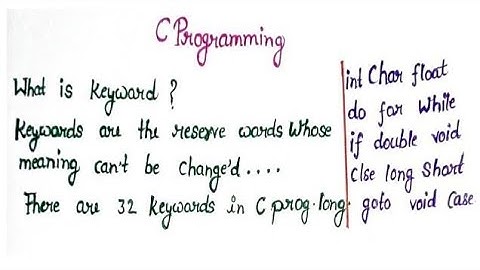 C Programming
What is Keyward ?
Keywards are the reserve wards Whose
meaning can't be Change'd ....
There are 32 Keywards in C prog. long.
int Char float
do far While
if double void
Clse long Short
goto void Case